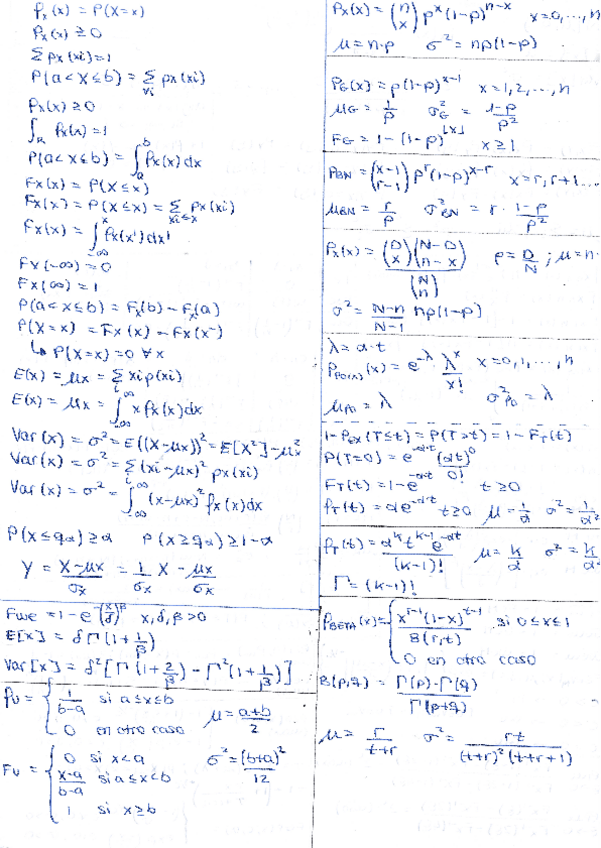 Px(x) = P(X=x)
Px(x) ≥ 0
Σ px(xi) = 1
P(a<x≤b) = Σ px(xi)
∀i
Px(x) ≥ 0
∫R fx(x) = 1
P(a<x≤b) = ∫a^b fx(x)dx
Fx(x) = P(X≤x)
Fx(x) = P(X≤x) = Σ xi≤x px(xi)
Fx(x) = ∫-∞^x fx(x')dx'
Fx(-∞) = 0
Fx(∞) = 1
P(a<x≤b) = Fx(b) - Fx(a)
P(X=x) = Fx(x) - Fx(x⁻)
↳ P(X=x) = 0 ∀x
E(x) = μx = Σ xi p(xi)
E(x) = μx = ∫-∞^∞ x fx(x)dx
Var(x) = σ² = E((X-μx))² = E[X²] - μx²
Var(x) = σ² = Σi (xi-μx)² px(xi)
Var(x) = σ² = ∫-∞^∞ (x-μx)² fx(x)dx
P(x≤qα) ≥ α P(x≥qα) ≥ 1-α
Y = (X-μx)/σx = 1/σx X - μx/σx
Fwe = 1-e^-(x/δ)^β x,δ,β>0
E[x] = δΓ(1+1/β)
Var[x] = δ²[Γ(1+2/β) - Γ²(1+1/β)]
Pu = { 1/(b-a) si a≤x≤b
0 en otro caso
μ = (a+b)/2
Fu = { 0 si x<a
(x-a)/(b-a) si a≤x<b
1 si x≥b
σ² = (b+a)²/12
Px(x) = (n x) p^x (1-p)^n-x x=0,...,n
μ = n·p σ² = np(1-p)
PG(x) = p(1-p)^x-1 x=1,2,...,n
μG = 1/p σ²G = (1-p)/p²
FG = 1-(1-p)^⌊x⌋ x≥1
PBN = (x-1 r-1) p^r (1-p)^x-r x=r,r+1...
μBN = r/p σ²BN = r·(1-p)/p²
Px(x) = (D x)(N-D n-x)/(N n) p = D/N ; μ=n·
σ² = (N-n)/(N-1) np(1-p)
λ = α·t
PPo(λ)(x) = e^-λ λ^x/x! x=0,1,...,n
μPo = λ σ²Po = λ
1-Pex(T≤t) = P(T>t) = 1-FT(t)
P(T=0) = e^-αt (αt)^0/0!
FT(t) = 1-e^-αt t≥0
fT(t) = αe^-αt t≥0 μ = 1/α σ² = 1/α²
fT(t) = α^k t^k-1 e^-αt/(k-1)! μ = k/α σ² = k/α²
Γ = (k-1)!
PBETA(x) = { x^r-1(1-x)^t-1/B(r,t) si 0≤x≤1
0 en otro caso
B(p,q) = Γ(p)·Γ(q)/Γ(p+q)
μ = r/(t+r) σ² = rt/((t+r)²(t+r+1))